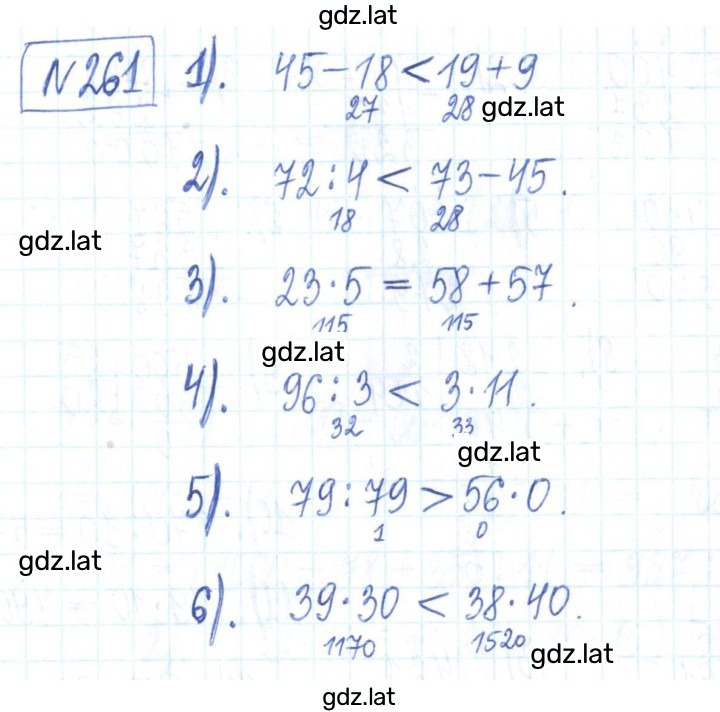 gdz.lat
N 261 1). 45 - 18 < 19 + 9
27 28 gdz.lat
2). 72 : 4 < 73 - 45.
18 28
gdz.lat
3). 23 · 5 = 58 + 57.
115 115
gdz.lat
4). 96 : 3 < 3 · 11.
32 33
gdz.lat
5). 79 : 79 > 56 · 0.
1 0
gdz.lat
6). 39 · 30 < 38 · 40.
1170 1520
gdz.lat
gdz.lat